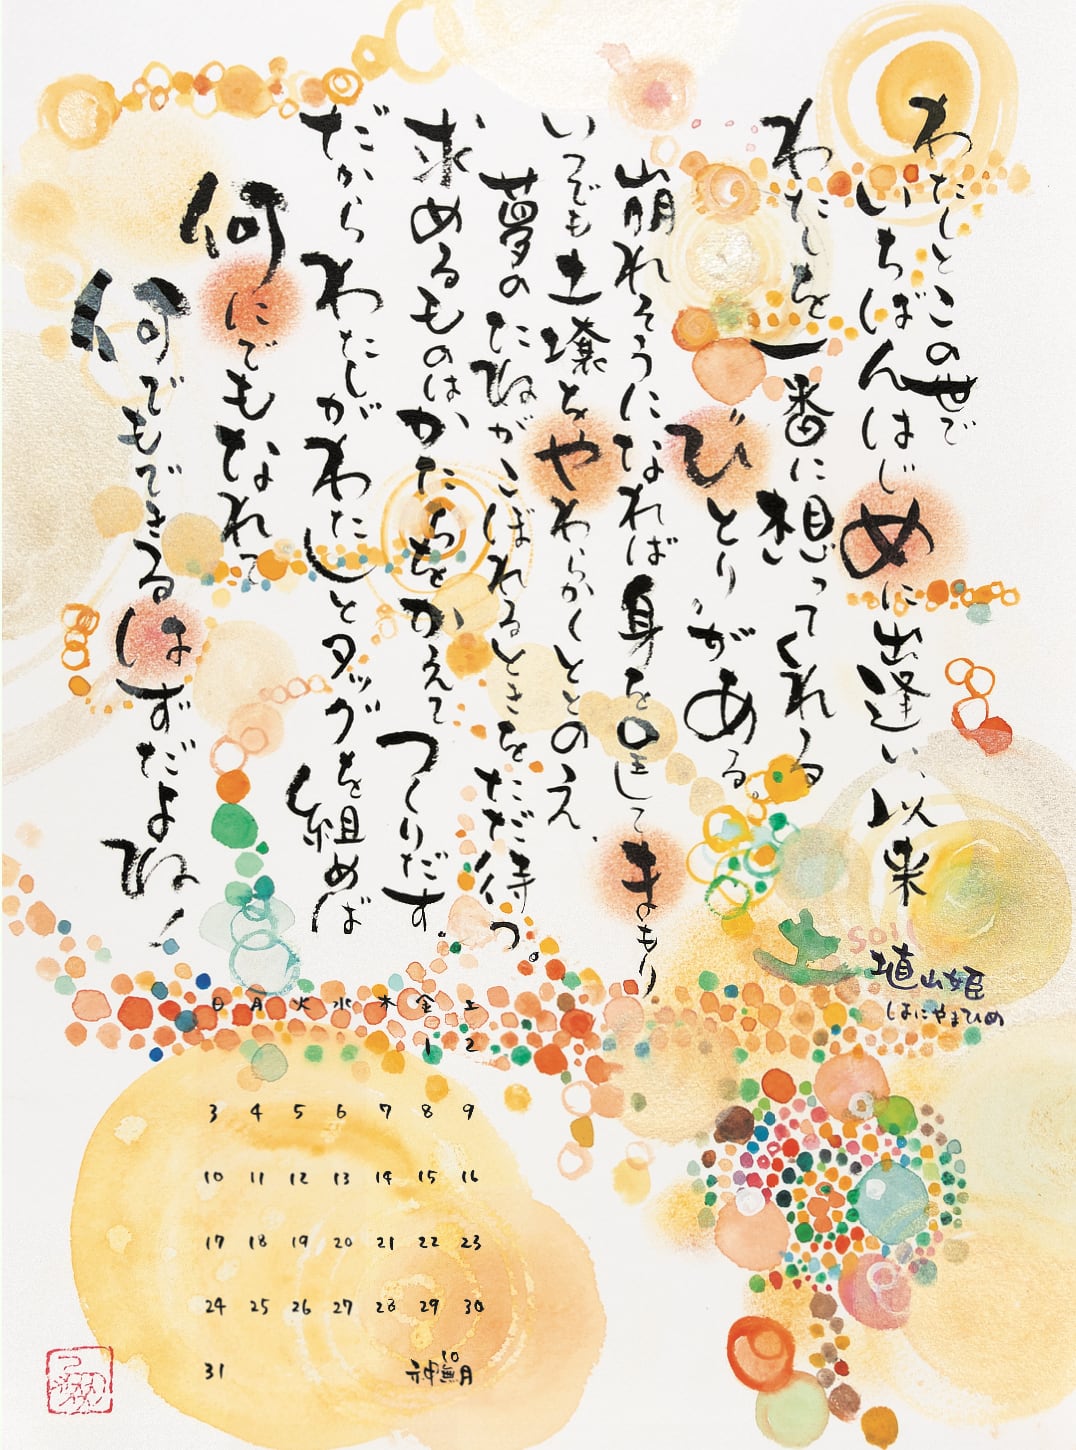 わたしとこの世で
いちばんはじめに出逢い、以来
わたしを一番に想ってくれる
びとりがある
崩れそうになれば身を呈してまもり
いつでも土壌をやわらかくととのえ、
夢のたねがこぼれるときをただ待つ。
求めるものはかたちをかえてつくりだす。
だからわたしがわたしとタッグを組めば
何にでもなれて
何でもできるはずだよね！
土 soil
埴山姫
はにやまひめ
日 月 火 水 木 金 土
1 2
3 4 5 6 7 8 9
10 11 12 13 14 15 16
17 18 19 20 21 22 23
24 25 26 27 28 29 30
31
10
神無月